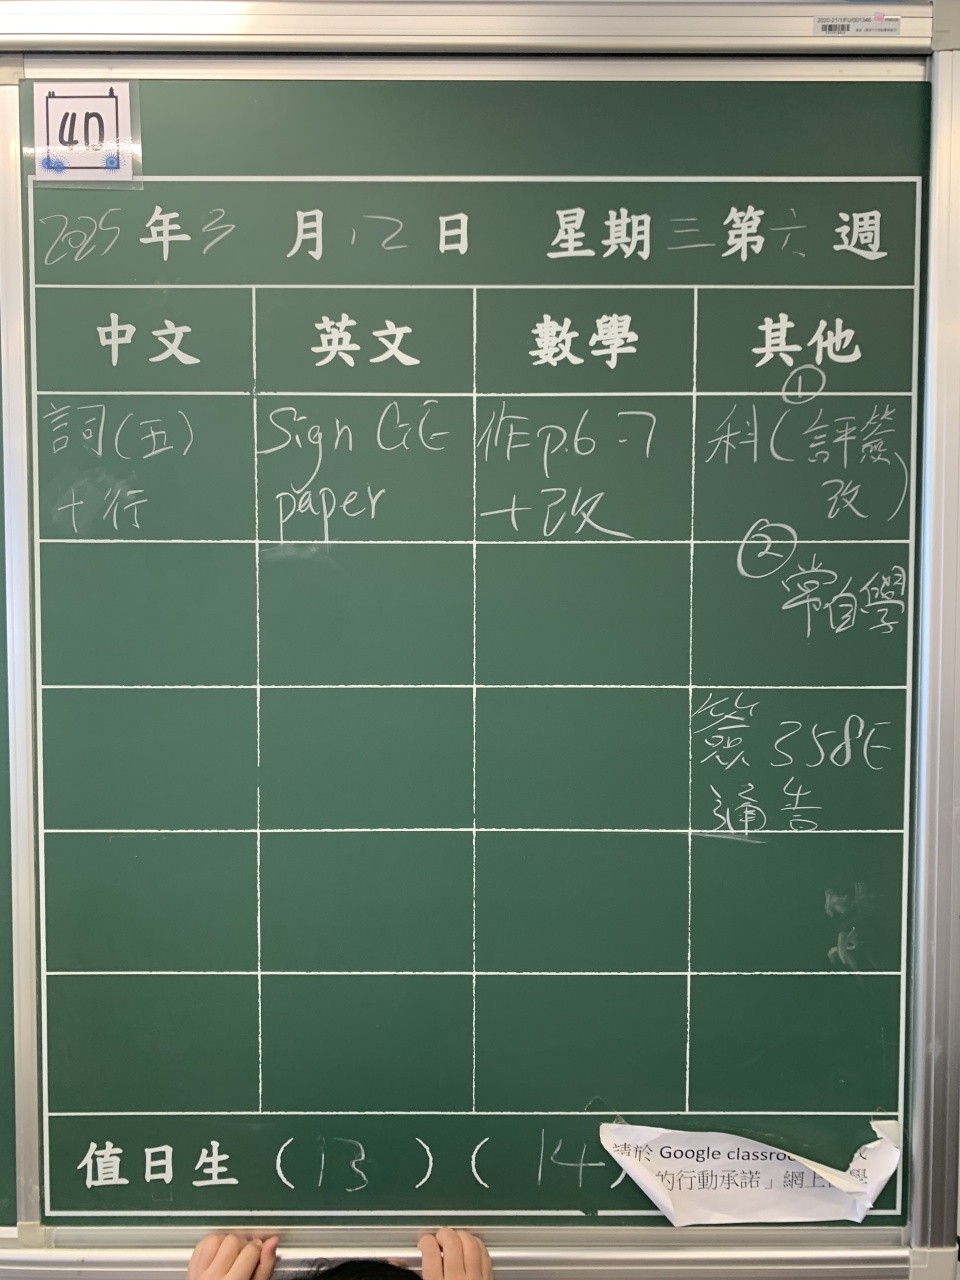 4D
2025 年 3 月 12 日 星期 三 第 六 週
中文 英文 數學 其他
詞(五)
+行
Sign GE
paper
作p.6-7
+改
① 科(評簽
改)
② 常自學
簽 358E
通告
值日生 (13) (14)
請於 Google
的行動承諾」網上